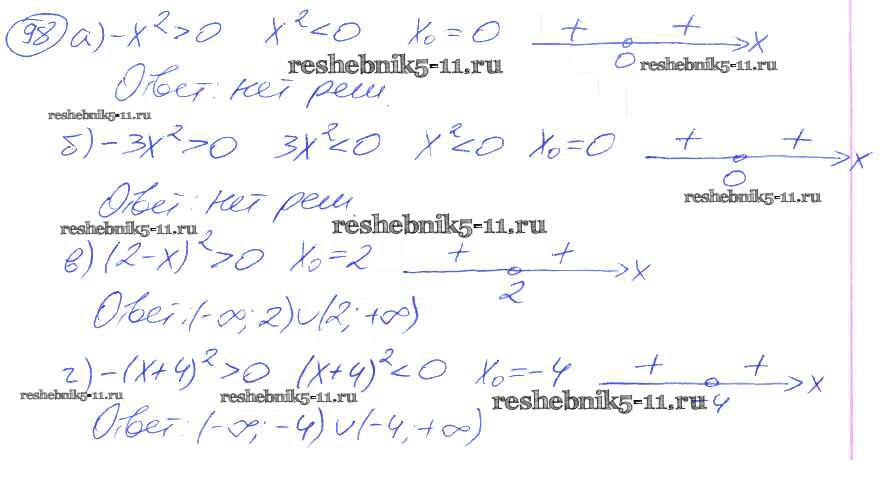 98 а) -x²>0 x²<0 x₀=0 + + x
0
reshebnik5-11.ru reshebnik5-11.ru
Ответ: нет реш.
reshebnik5-11.ru
б) -3x²>0 3x²<0 x²<0 x₀=0 + + x
0
reshebnik5-11.ru
Ответ: нет реш.
reshebnik5-11.ru reshebnik5-11.ru
в) (2-x)²>0 x₀=2 + + x
2
Ответ: (-∞; 2)∪(2; +∞)
г) -(x+4)²>0 (x+4)²<0 x₀=-4 + + x
reshebnik5-11.ru reshebnik5-11.ru reshebnik5-11.ru -4
Ответ: (-∞; -4)∪(-4; +∞)